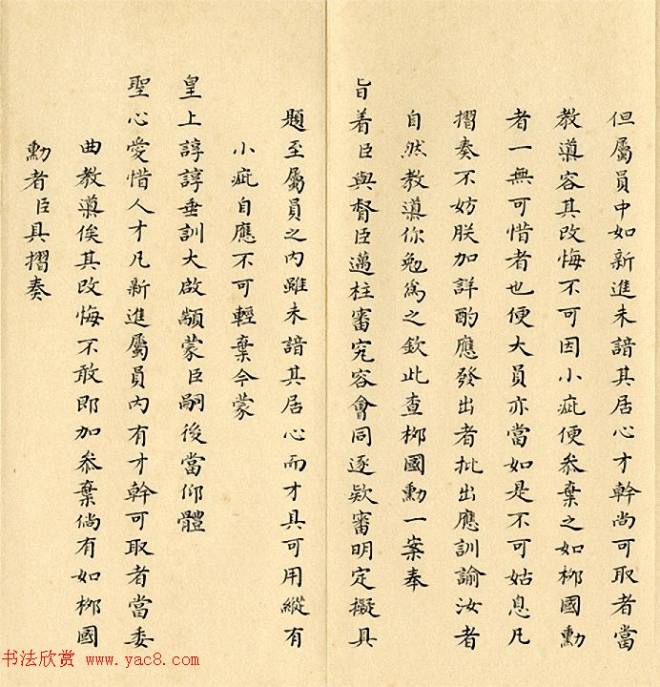 但屬員中如新進未諳其居心才幹尚可取者當
教導容其改悔不可因小疵便叅棄之如栁國勳
者一無可惜者也便大員亦當如是不可姑息凡
摺奏不妨朕加詳酌應發出者批出應訓諭汝者
自然教導你勉爲之欽此查栁國勳一案奉
旨着臣與督臣邁柱審究容會同逐欵審明定擬具
題至屬員之內雖未諳其居心而才具可用縱有
小疵自應不可輕棄今蒙
皇上諄諄垂訓大啟顓蒙臣嗣後當仰體
聖心愛惜人才凡新進屬員內有才幹可取者當委
曲教導俟其改悔不敢即加叅棄倘有如栁國
勳者臣具摺奏
书法欣赏 www.yac8.com